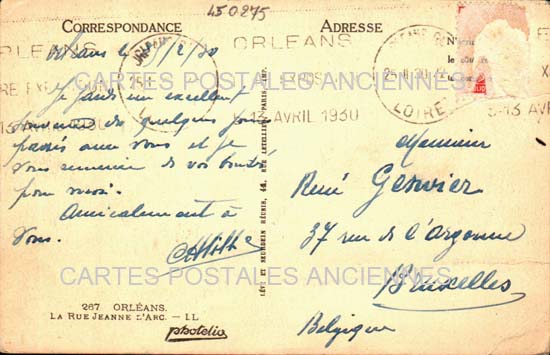 450275
CORRESPONDANCE
ADRESSE
ORLEANS
ORLEANS
Orléans le /2/30
EXPOS
25-II 30
LOIRE
13 AVRIL 1930
5-13 AV
CARTES POSTALES ANCIENNES
Je garde un excellent
souvenir des quelques jours
passés avec vous et je
vous remercie de vos bontés
pour moi.
Amicalement à
Vous.
LÉVY ET NEURDEIN RÉUNIS, 44, RUE LETELLIER, PARIS IMP.
Monsieur
René Gervier
37 rue de l'Argonne
Bruxelles
Belgique
CARTES POSTALES ANCIENNES
267 ORLÉANS.
LA RUE JEANNE D'ARC. — LL
photelio